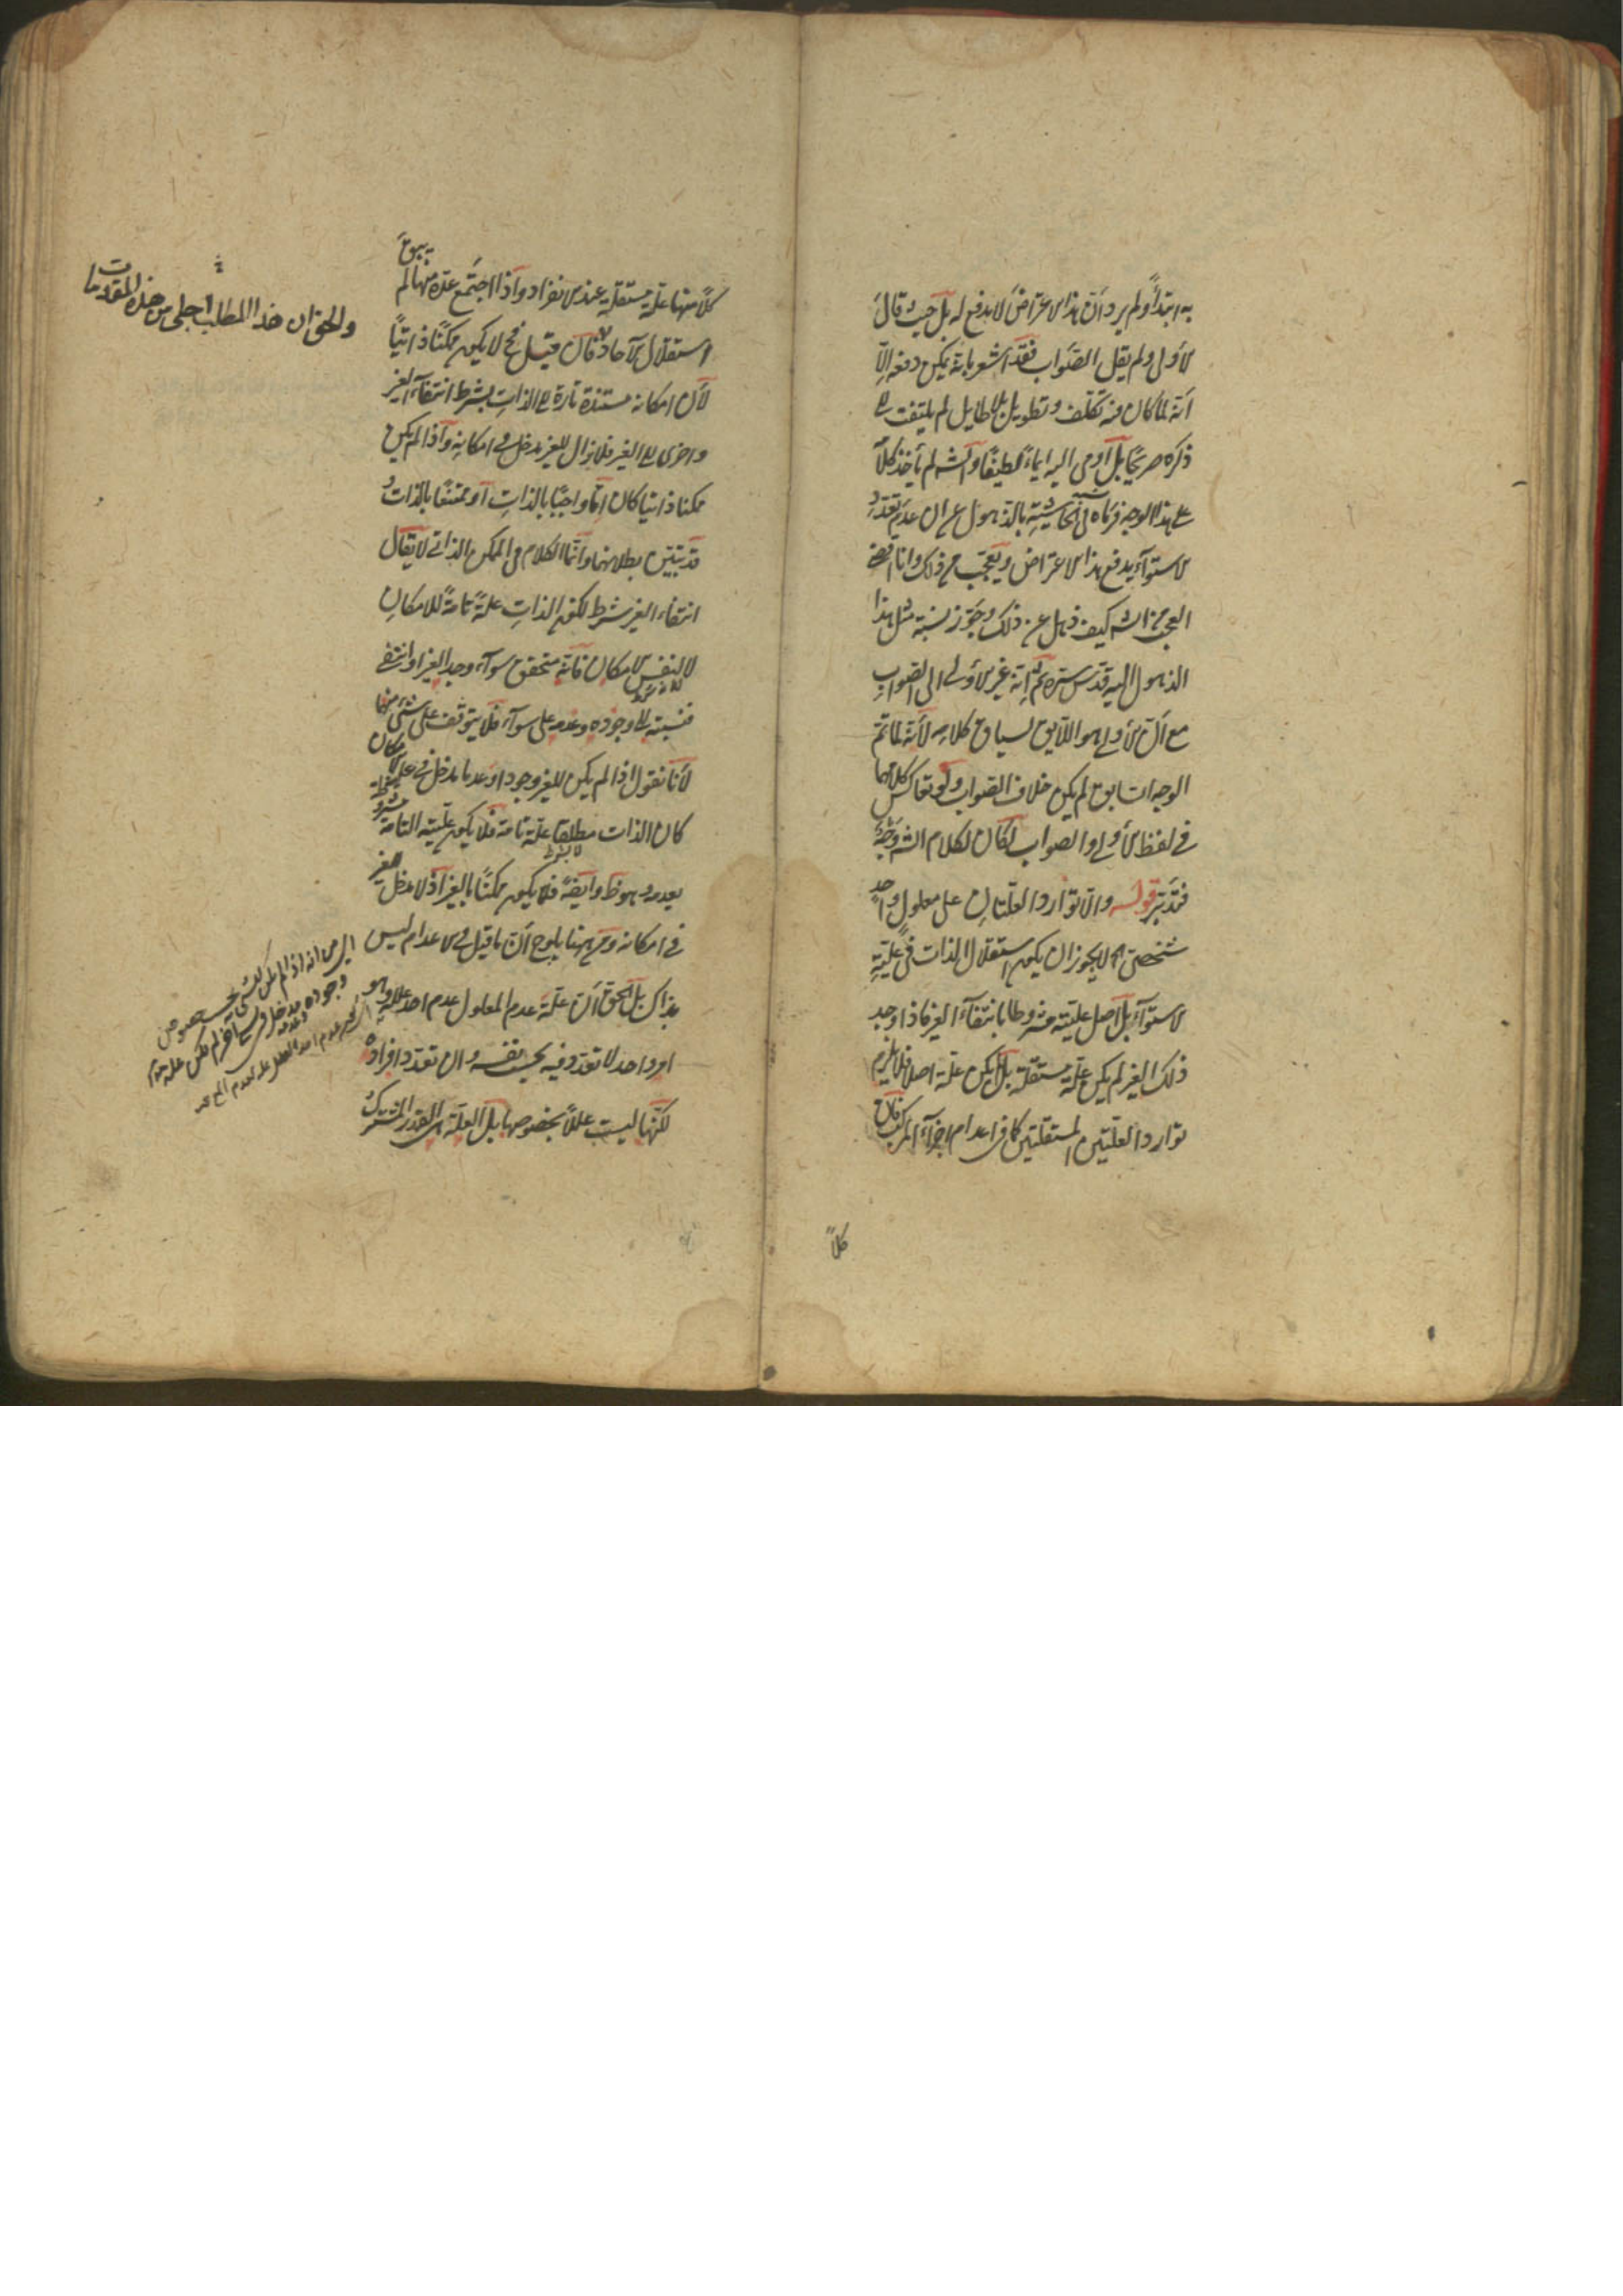 به ابتداءً ولم يرد أن هذا الاعتراض لا يدفع له بل حيث قال
الأولى ولم يقل الصواب فقد اشعر بانه يمكن دفعه إلا
أنه لما كان فيه تكلف وتطويل بلا طايل لم يلتفت الى
ذكره صريحًا بل أومى اليه ايماءً لطيفًا والش لم يأخذ كلامه
على هذا الوجه فرماه في الحاشية بالذهول عن ان عدم تعدد
الاستواء يدفع هذا الاعتراض ويتعجب من ذلك وانا
العجب من الش كيف ذهل عن ذلك وجوّز نسبة مثل هذا
الذهول اليه قدس سره ثم إنه غير الأولى الى الصواب
مع أن الأولى هو اللايق لسياق كلامه لأنه لما تم
الوجه السابق لم يكن خلاف الصواب ولو تعاكس كلامهما
في لفظ الأولى والصواب لكان لكلام الش وجه
فتدبر قوله والا توارد العلتان على معلول واحد
شخصي اه لا يجوز ان يكون استقلال الذات في علية
الاستواء بل اصل عليته مشروطا بانتفاء الغير فاذا وجد
ذلك الغير لم يكن علة مستقلة بل لم يكن علة اصلا فلا يلزم
توارد العلتين المستقلتين كما في اعدام اجزاء المركب فان
كلاً
كلاً منها علة مستقلة عند الانفراد واذا اجتمع عدة منها لم يبق
استقلال الآحاد فان قيل فح لا يكون ممكنًا ذاتيًا
لأن امكانه مستندة تارة الى الذات بشرط انتفاء الغير
واخرى الى الغير فلا يزال للغير مدخل في امكانه واذا لم يكن
ممكنا ذاتيا كان امّا واجبًا بالذات أو ممتنعًا بالذات و
قد تبين بطلانهما وانما الكلام في الممكن الذاتي لا يقال
انتفاء الغير شرط لكون الذات علةً تامةً للامكان
لا لنفس الامكان فانه متحقق سواء وجد الغير او انتفى
فنسبته الى وجوده وعدمه على سواء فلا يتوقف على شئ منهما
لأنا نقول اذا لم يكن للغير وجودا وعدما مدخل في علية الامكان
كان الذات مطلقا علة تامة فلا يكون عليته التامة مشروطة
بعدمه وهو ظ وايضًا فلا يكون ممكنًا بالغير اذ لا مدخل للغير
في امكانه ومن ههنا يلوح أن ما قيل في الاعدام ليس
بذاك بل الحق أن علة عدم المعلول عدم احد علله وهو
امر واحد لا تعدد فيه بحسب نفسه وان تعدد افراده
لكنها ليست عللاً بخصوصها بل العلة هي القدر المشترك
والحق ان هذا المطلب اجلى من هذه المقدمات